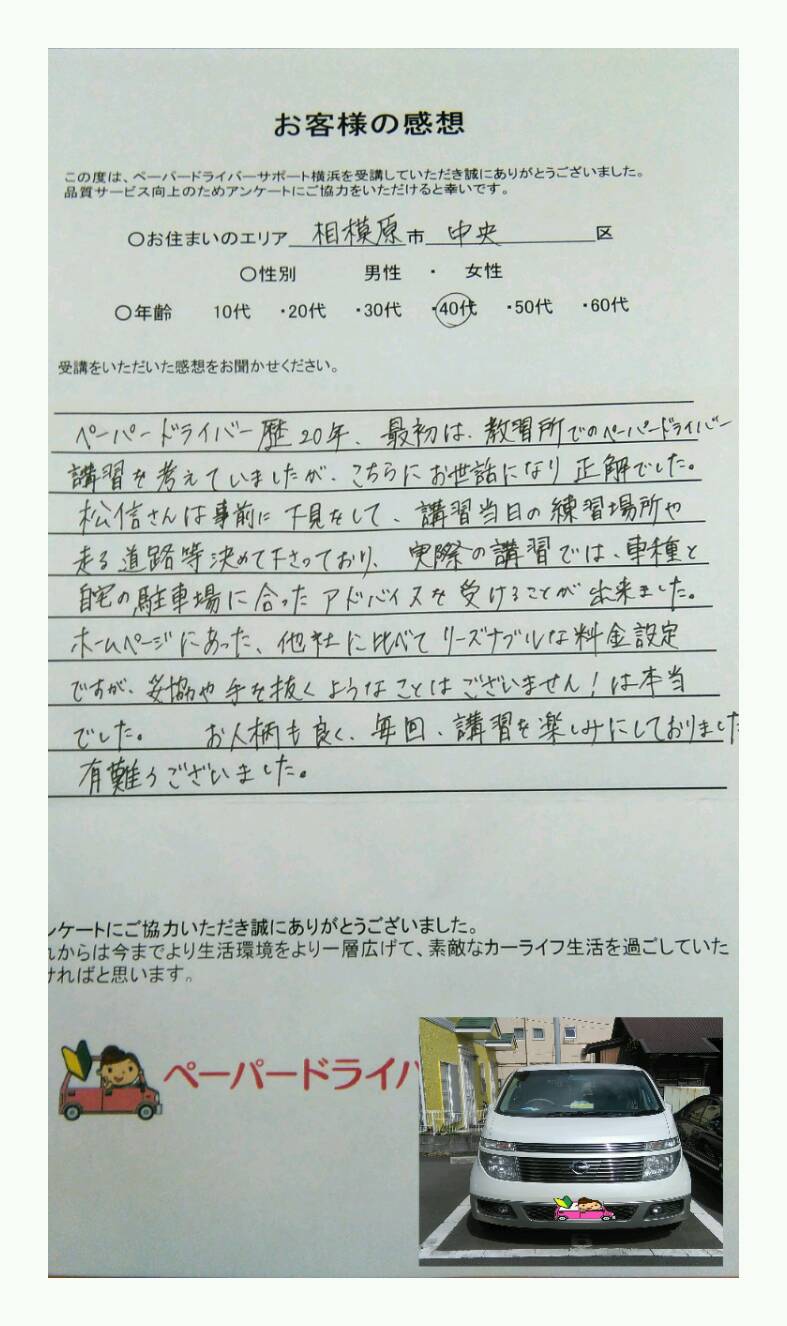 お客様の感想
この度は、ペーパードライバーサポート横浜を受講していただき誠にありがとうございました。
品質サービス向上のためアンケートにご協力をいただけると幸いです。
〇お住まいのエリア 相模原市 中央 区
〇性別 男性 ・ 女性
〇年齢 10代 ・20代 ・30代 ・40代 ・50代 ・60代
受講をいただいた感想をお聞かせください。
ペーパードライバー歴20年、最初は、教習所でのペーパードライバー
講習を考えていましたが、こちらにお世話になり正解でした。
松信さんは事前に下見をして、講習当日の練習場所や
走る道路等決めて下さっており、実際の講習では、車種と
自宅の駐車場に合ったアドバイスを受けることが出来ました。
ホームページにあった、他社に比べてリーズナブルな料金設定
ですが、妥協や手を抜くようなことはございません！は本当
でした。 お人柄も良く、毎回、講習を楽しみにしておりました
有難うございました。
ンケートにご協力いただき誠にありがとうございました。
れからは今までより生活環境をより一層広げて、素敵なカーライフ生活を過ごしていた
ければと思います。
ペーパードライバ